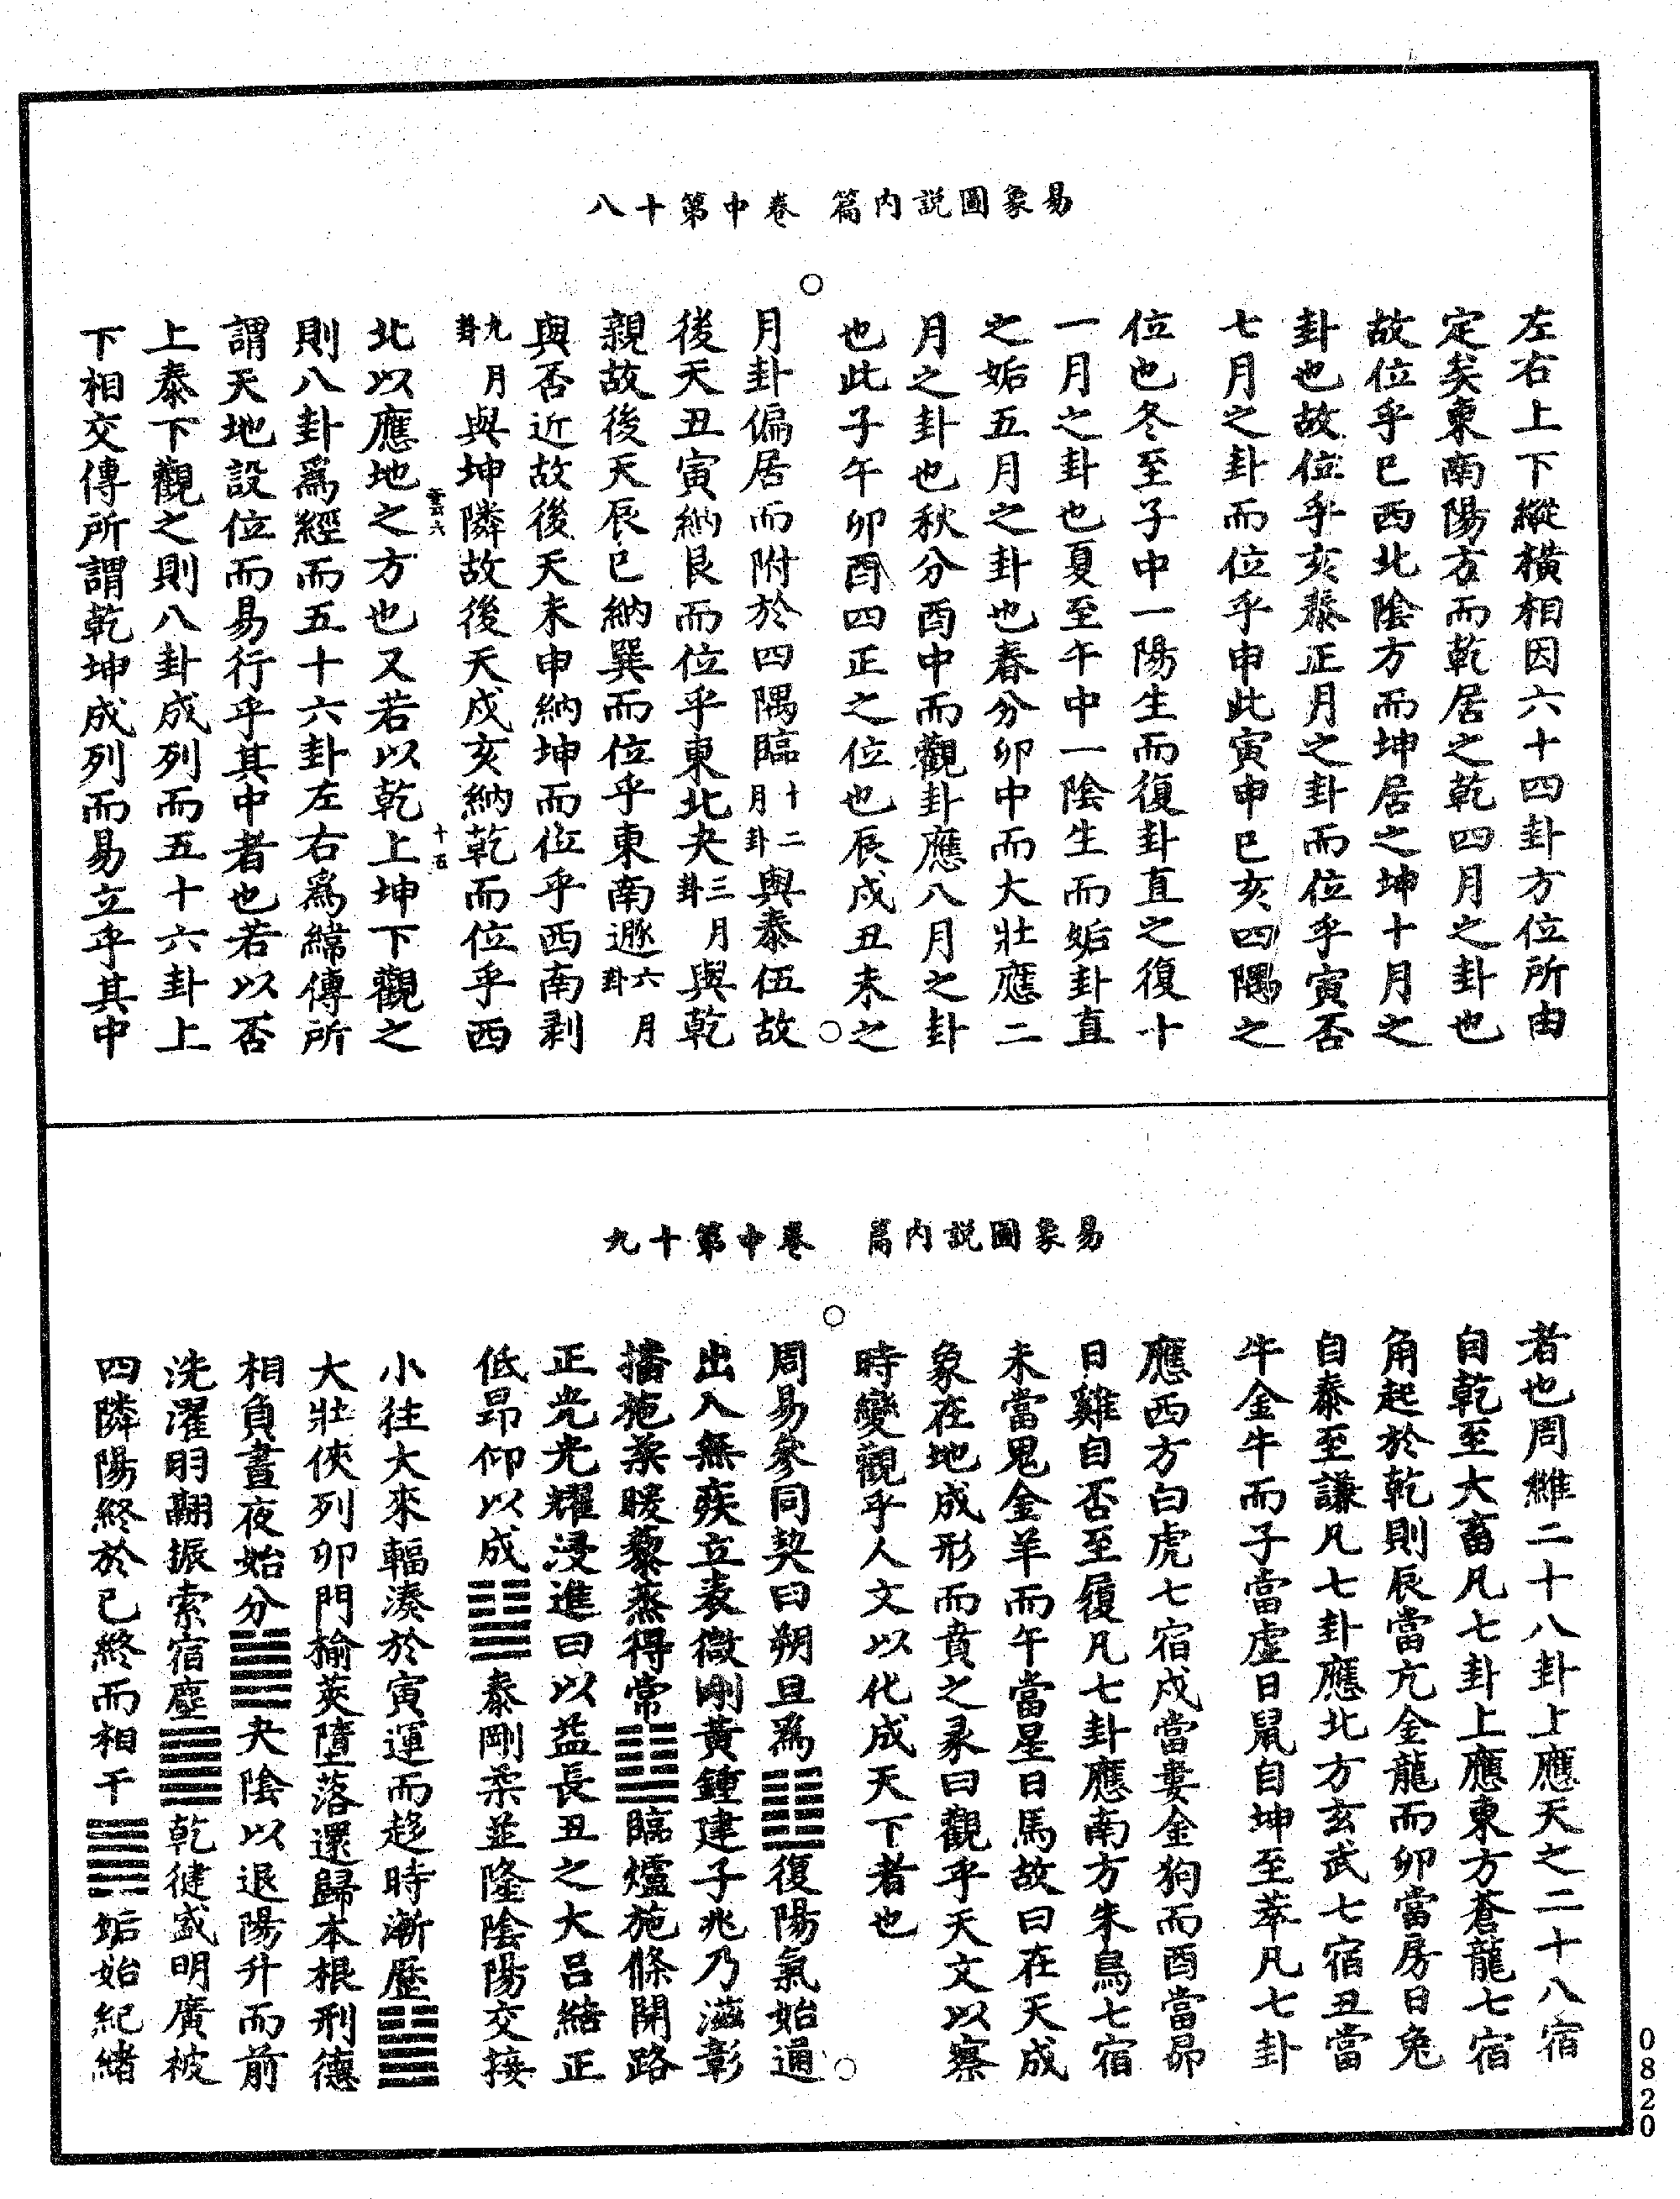 易象圖説内篇 卷中第十八
左右上下縱橫相因六十四卦方位所由
定矣東南陽方而乾居之乾四月之卦也
故位乎巳西北陰方而坤居之坤十月之
卦也故位乎亥泰正月之卦而位乎寅否
七月之卦而位乎申此寅申巳亥四隅之
位也冬至子中一陽生而復卦直之復十
一月之卦也夏至午中一陰生而姤卦直
之姤五月之卦也春分卯中而大壯應二
月之卦也秋分酉中而觀卦應八月之卦
也此子午卯酉四正之位也辰戌丑未之
月卦偏居而附於四隅臨十二月卦與泰伍故
後天丑寅納艮而位乎東北夬三月卦與乾
親故後天辰巳納巽而位乎東南遯六月卦
與否近故後天未申納坤而位乎西南剥
九月卦與坤隣故後天戌亥納乾而位乎西
北以應地之方也又若以乾上坤下觀之
雲六
十五
則八卦爲經而五十六卦左右爲緯傳所
謂天地設位而易行乎其中者也若以否
上泰下觀之則八卦成列而五十六卦上
下相交傳所謂乾坤成列而易立乎其中
易象圖説内篇 卷中第十九
者也周維二十八卦上應天之二十八宿
自乾至大畜凡七卦上應東方蒼龍七宿
角起於乾則辰當亢金龍而卯當房日兔
自泰至謙凡七卦應北方玄武七宿丑當
牛金牛而子當虛日鼠自坤至萃凡七卦
應西方白虎七宿戌當婁金狗而酉當昴
日雞自否至履凡七卦應南方朱鳥七宿
未當鬼金羊而午當星日馬故曰在天成
象在地成形而賁之彖曰觀乎天文以察
時變觀乎人文以化成天下者也
周易參同契曰朔旦爲䷗復陽氣始通
出入無疾立表微剛黃鍾建子兆乃滋彰
播施柔暖黎蒸得常䷒臨爐施條開路
正光光耀浸進日以益長丑之大呂結正
低昂仰以成䷊泰剛柔並隆陰陽交接
小往大來輻湊於寅運而趍時漸歷䷡
大壯俠列卯門榆莢墮落還歸本根刑德
相負晝夜始分䷪夬陰以退陽升而前
洗濯羽翮振索宿塵䷀乾健盛明廣被
四隣陽終於巳終而相干䷫姤始紀緒
0820